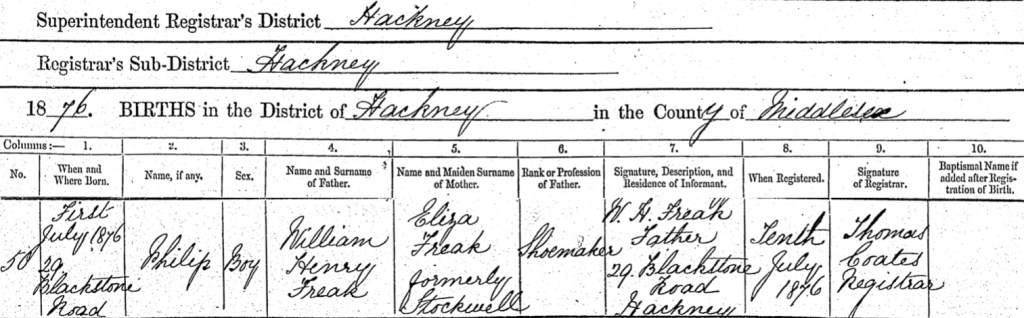 Superintendent Registrar's District Hackney
Registrar's Sub-District Hackney
1876. BIRTHS in the District of Hackney in the County of Middlesex
Columns:— 1. 2. 3. 4. 5. 6. 7. 8. 9. 10.
No. When and Where Born. Name, if any. Sex. Name and Surname of Father. Name and Maiden Surname of Mother. Rank or Profession of Father. Signature, Description, and Residence of Informant. When Registered. Signature of Registrar. Baptismal Name if added after Registration of Birth.
50
First
July 1876
29
Blackstone
Road
Philip
Boy
William
Henry
Freak
Eliza
Freak
formerly
Stockwell
Shoemaker
W. H. Freak
Father
29 Blackstone
Road
Hackney
Tenth
July
1876
Thomas
Coates
Registrar